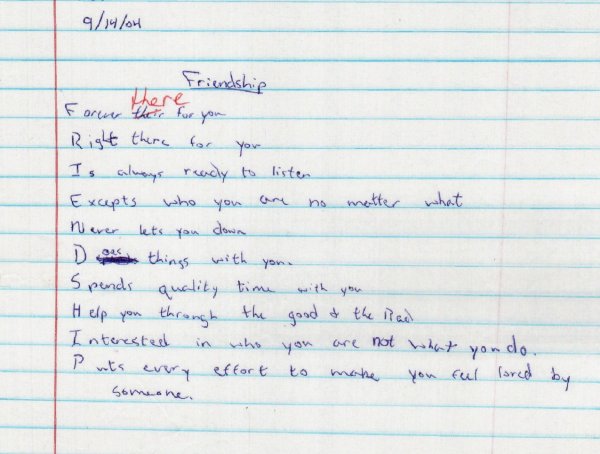 9/14/04
Friendship
there
Forever their for you
Right there for you
Is always ready to listen
Excepts who you are no matter what
Never lets you down
Does things with you.
Spends quality time with you
Help you through the good & the Bad
Interested in who you are not what you do.
Puts every effort to make you feel loved by
someone.